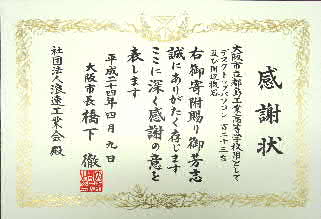 感謝状
大阪市立都島工業高等学校用として
デスクトップパソコン 百二十三台
及び附設機器
右御寄附賜り御芳志
誠にありがたく存じます
ここに深く感謝の意を
表します
平成二十四年四月九日
大阪市長 橋下徹
社団法人浪速工業会殿